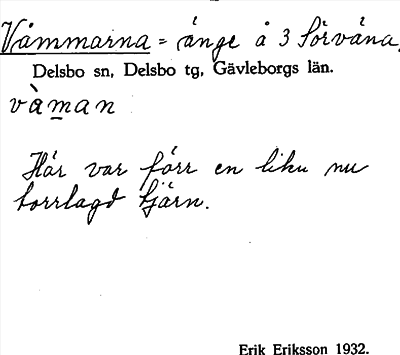 Våmmarna = änge å 3 Sörväna.
Delsbo sn, Delsbo tg, Gävleborgs län.
vå̀man
Här var förr en liten nu
torrlagd tjärn.
Erik Eriksson 1932.